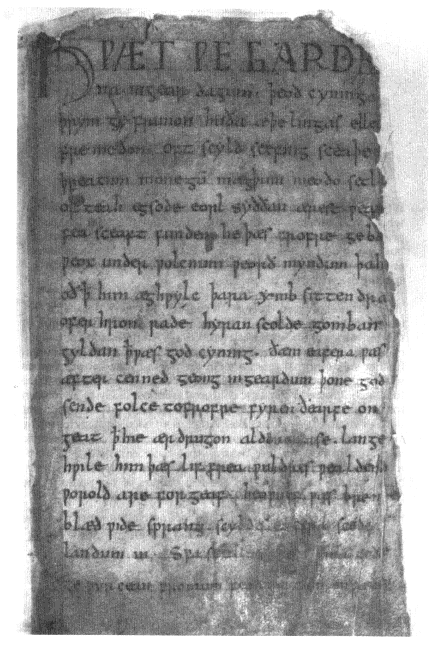 HǷÆT ǷE GARDE
na ingear dagum. þeod cyninga
þrym ge frunon huða æþelingas elle
fre medon. oft scyld scefing sceaþe
þreatum monegū mægþum meodo setl
of teah egsode eorl syððan ærest ƿear
fea sceaft funden he þæs frofre geba
ƿeox under ƿolcnum ƿeorð myndum þah
oð þ̄ him æghƿylc þara ymb sittendra
ofer hron rade hyran scolde gomban
gyldan þ̄ ƿæs god cyning. ðæm eafera ƿæs
æfter cenned geong ingeardum þone god
sende folce tofrofre fyren ðearfe on
geat þ̄ hie ær drugon lange
hƿile him þæs lif frea ƿuldres ƿealdend
ƿorold are for geaf. ƿæs breme
blæd ƿide sprang
landum in. Sƿa
ge ƿyrcean fromum